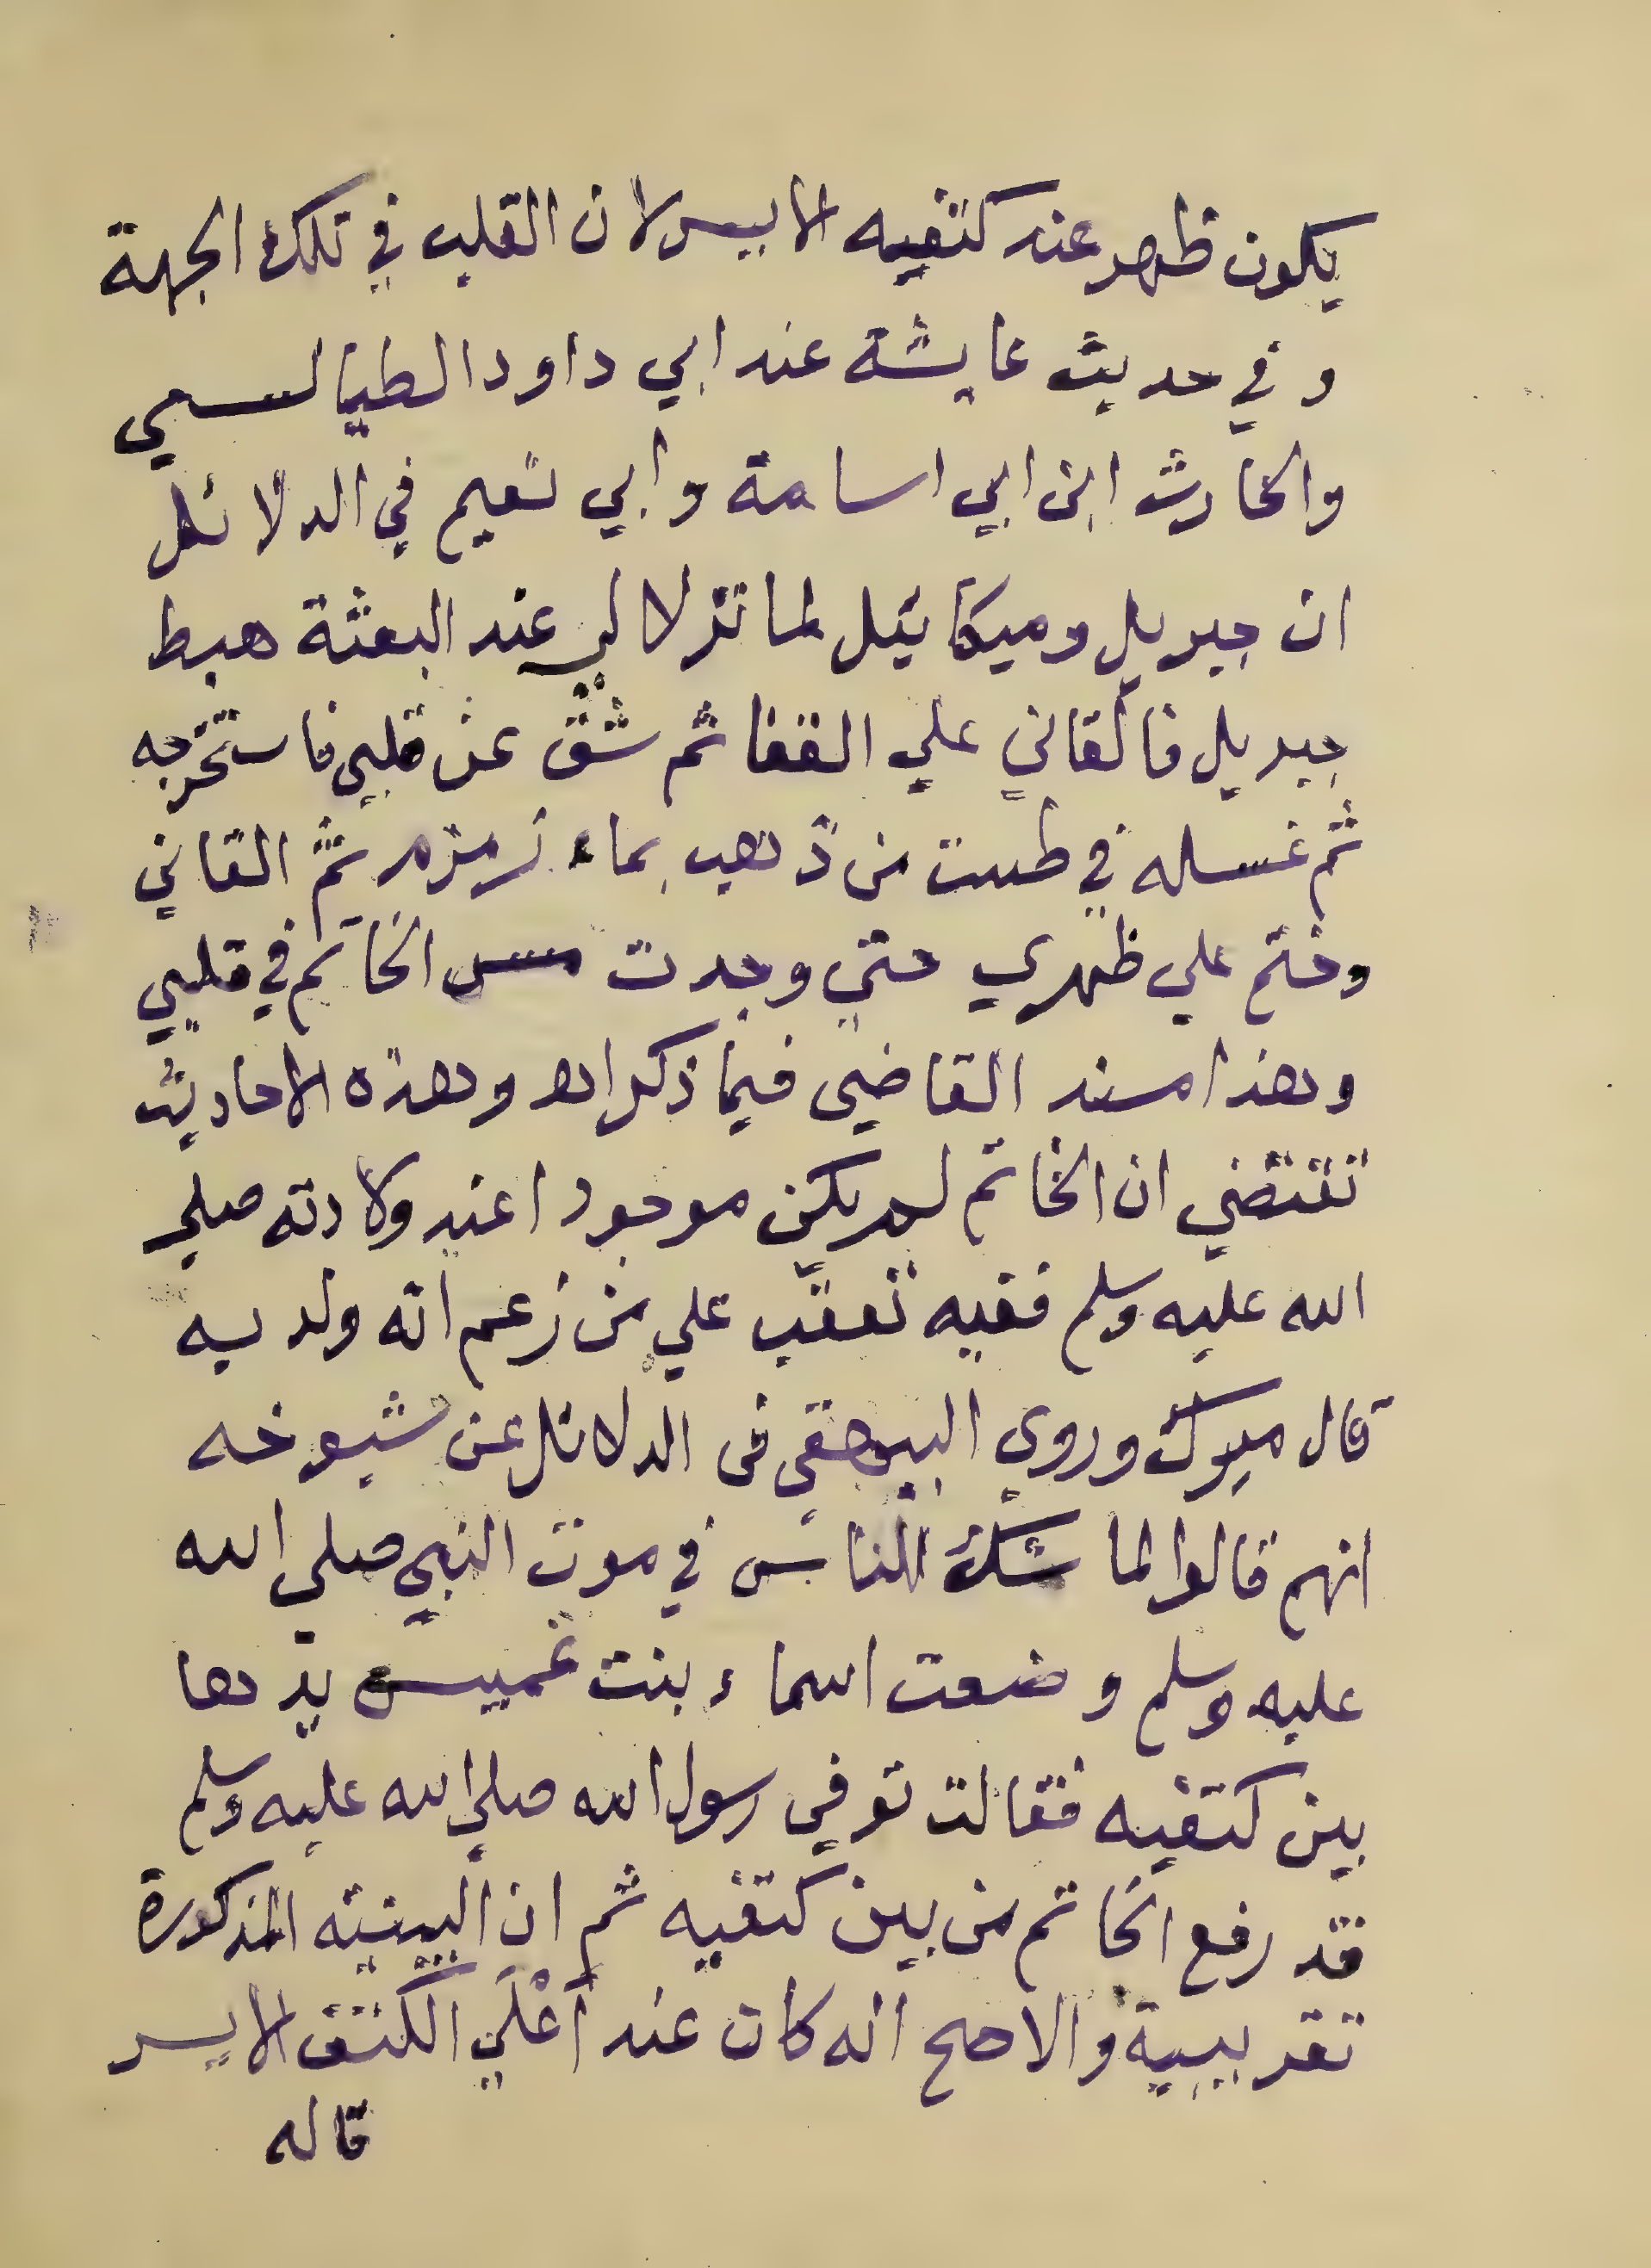 يكون ظهر عند كتفيه الايسر لان القلب في تلك الجهة
وفي حديث عايشة عند ابي داود الطيالسي
والحارث ابن ابي اسامة وأبي نعيم في الدلائل
ان جبريل وميكائيل لما نزلا لي عند البعثة هبط
جبريل فالقاني علي القفا ثم شق عن قلبي فاستخرجه
ثم غسله في طست من ذهب بماء زمزم ثم القاني
وختم علي ظهري حتي وجدت مس الخاتم في قلبي
وهذا مسند القاضي فيما ذكراه وهذه الاحاديث
تقتضي ان الخاتم لم يكن موجودا عند ولادته صلي
الله عليه وسلم ففيه تعقب علي من زعم انه ولد به
قال ميرك وروي البيهقي في الدلائل عن شيوخه
انهم قالوا لما شك الناس في موت النبي صلي الله
عليه وسلم وضعت اسماء بنت عميس يدها
بين كتفيه فقالت توفي رسول الله صلي الله عليه وسلم
قد رفع الخاتم من بين كتفيه ثم ان البينية المذكورة
تقريبية والاصح انه كان عند أعْلَي الكتف الايسر
قاله